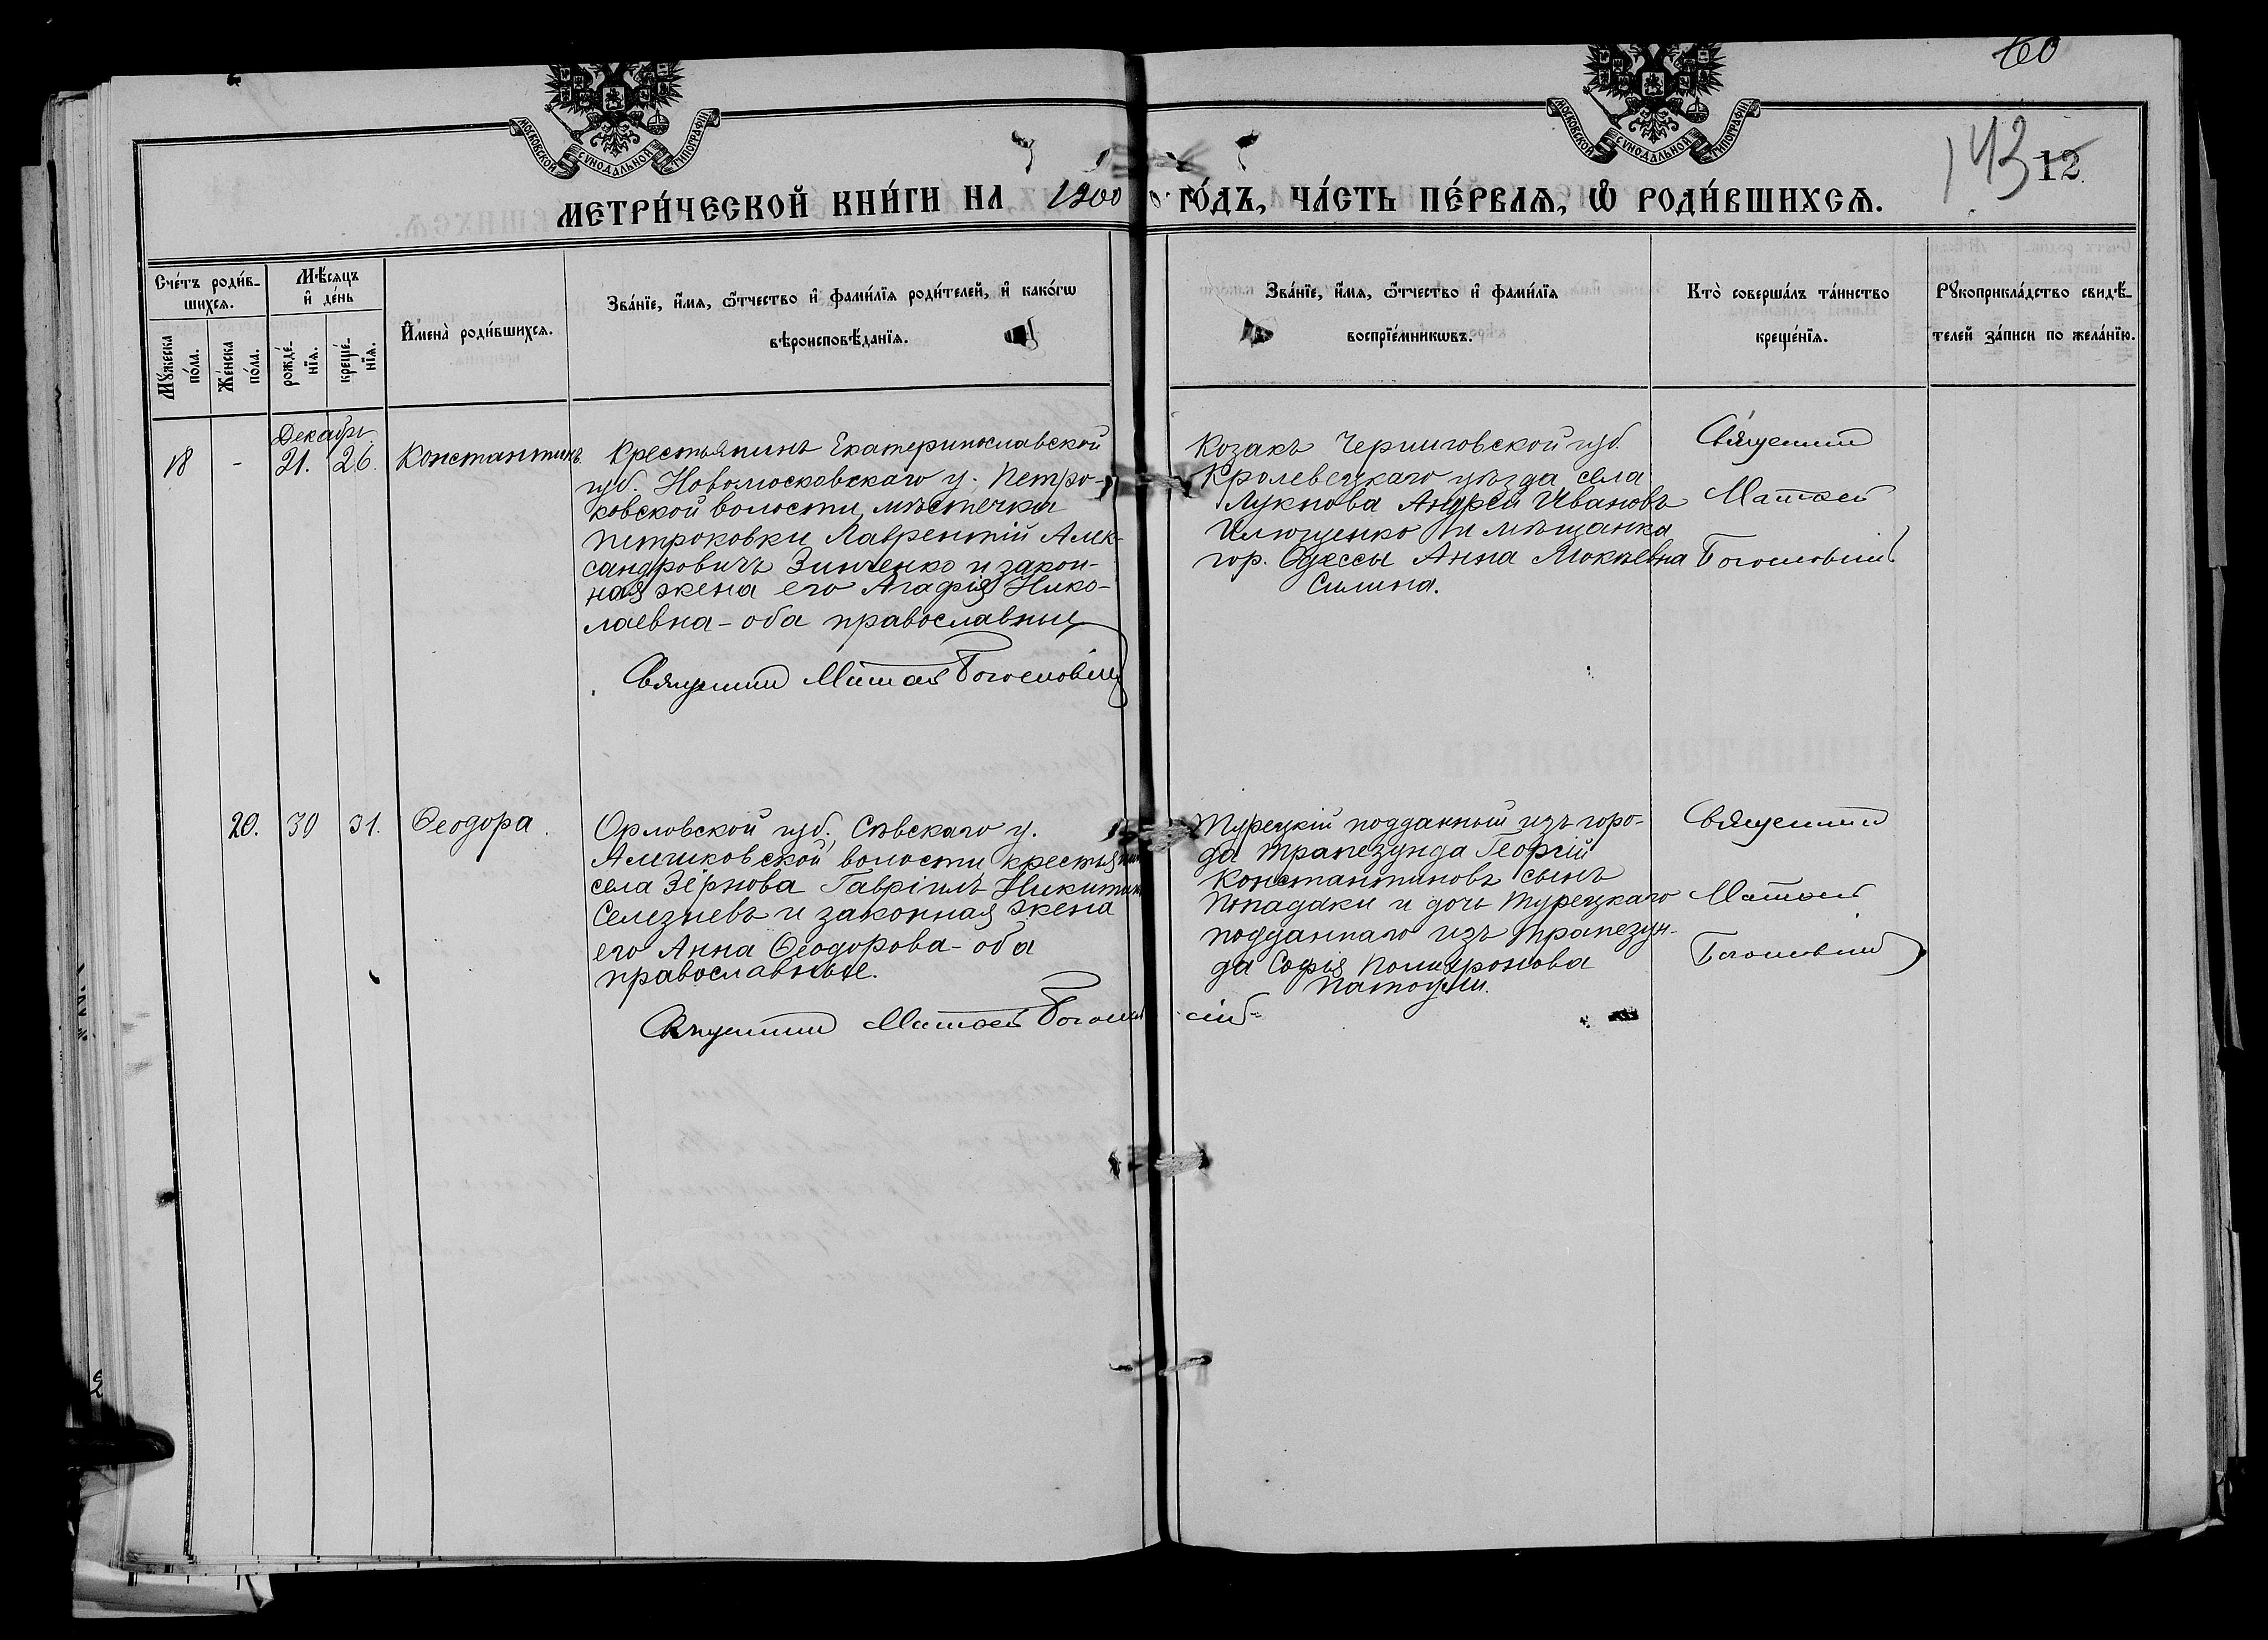 160
МОСКОВСКОЙ СѴНОДАЛЬНОЙ ТИПОГРАФІИ
МОСКОВСКОЙ СѴНОДАЛЬНОЙ ТИПОГРАФІИ
143
12.
МЕТРИ́ЧЕСКОЙ КНИ́ГИ НА 1900 ГО́ДЪ, ЧА́СТЬ ПЕ́РВАѦ, Ѡ҆ РОДИ́ВШИХСѦ.
Сче́тъ роди́в-
шихсѧ.
Мꙋ́жеска по́ла.
Же́нска по́ла.
Мѣ́сяцъ
и҆ де́нь
рожде́-
нїѧ.
креще́-
нїѧ.
И҆мена̀ роди́вшихсѧ.
Зва́нїе, и҆́мѧ, ѻ҆́тчество и҆ фами́лїѧ роди́телей, и҆ како́гѡ
вѣроисповѣ́данїѧ.
Зва́нїе, и҆́мѧ, ѻ҆́тчество и҆ фами́лїѧ
воспрїе́мникѡвъ.
Кто̀ соверша́лъ та́инство
креще́нїѧ.
Рꙋкоприкла́дство свидѣ́-
телей за́писи по жела́нїю.
Декабрь
18 - 21. 26. Константинъ
Крестьянинъ Екатеринославской
губ. Новомосковскаго у. Петро-
ковской волости, мѣстечка
Петроковки Лаврентій Алек-
сандровичъ Зинченко и закон-
ная жена его Агафія Нико-
лаевна - оба православные
Священникъ Матѳей Богословскій
Козакъ Черниговской губ.
Кролевецкаго уѣзда села
Лукнова Андрей Ивановъ
Илющенко и мѣщанка
гор. Одессы Анна Мокіевна
Силина.
Священникъ
Матѳей
Богословскій
20. 30 31. Ѳеодора
Орловской губ. Сѣвскаго у.
волости крестьянинъ
села Зёрнова Гавріилъ Никитинъ
Селезневъ и законная жена
его Анна Ѳеодорова - оба
православные.
Священникъ Матѳей Богословскій
Турецкій подданный изъ горо-
да Трапезунда Георгій
Константиновъ сынъ
и дочь Турецкаго
подданнаго изъ Трапезун-
да Софія Полихронова
Священникъ
Матѳей
Богословскій